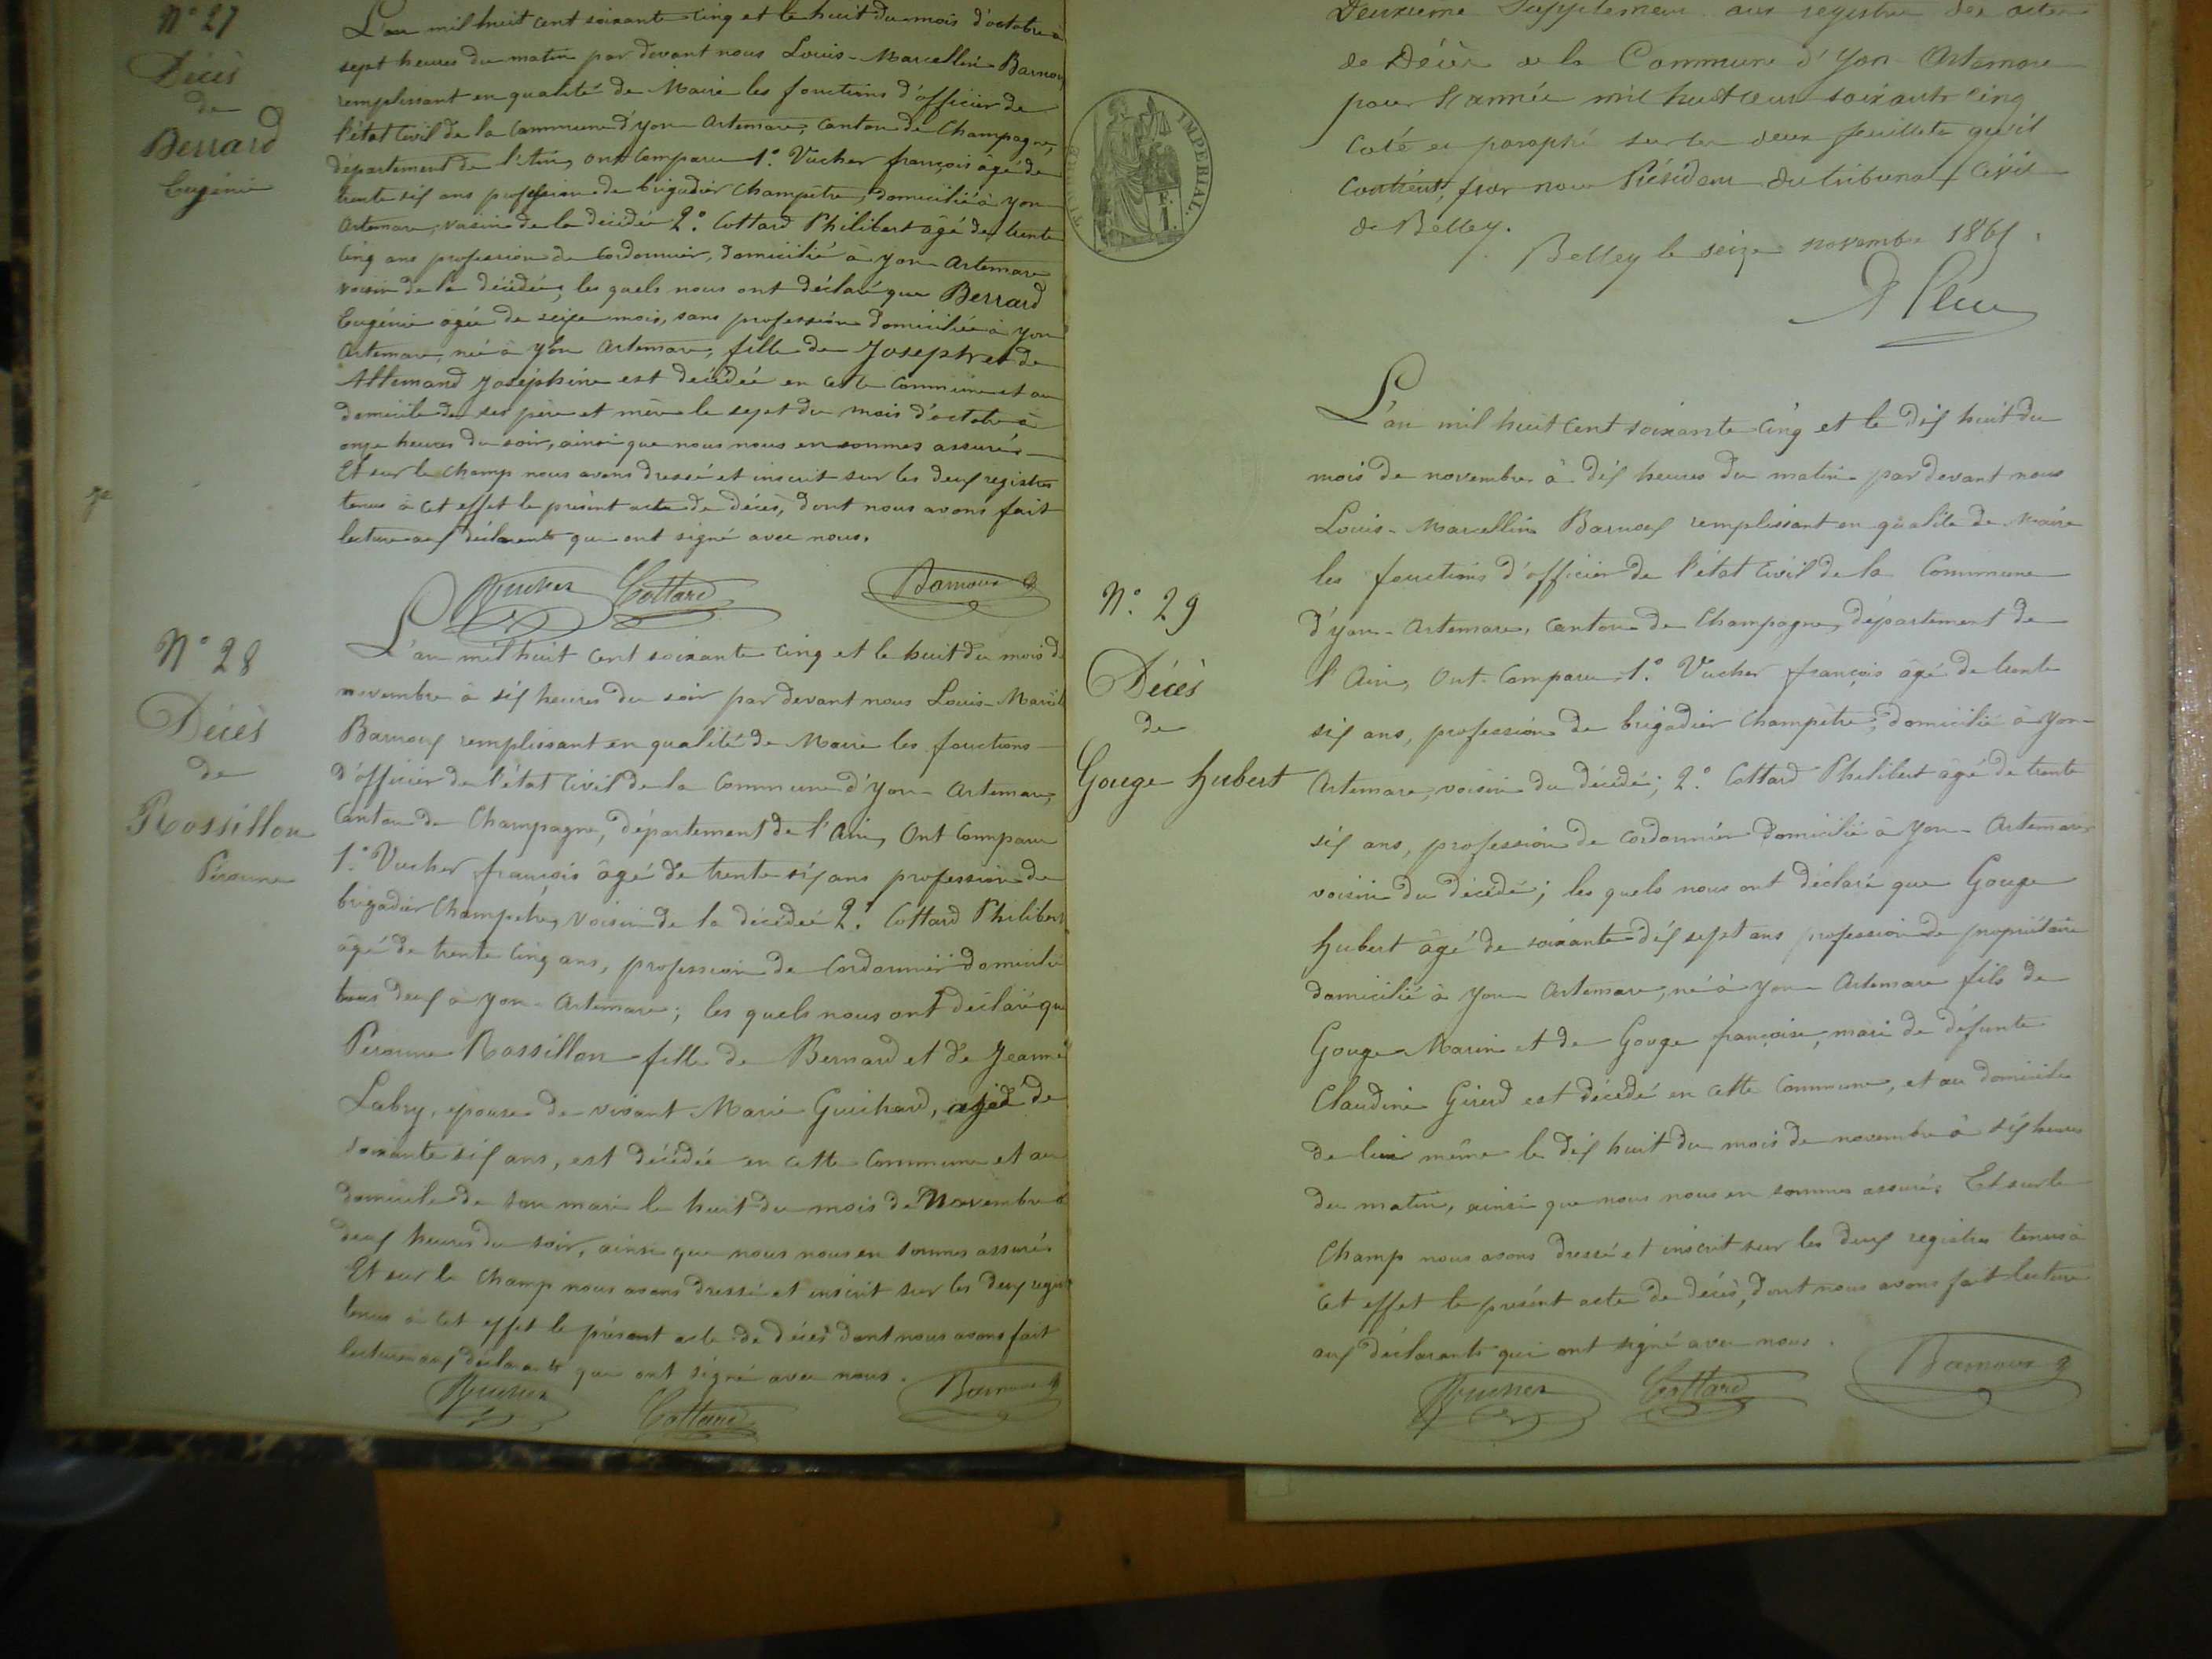 N° 27
Décès
de
Berrard
Eugénie
L'an mil huit cent soixante cinq et le huit du mois d'octobre à
sept heures du matin par devant nous Louis-Marcellin Barnoux
remplissant en qualité de Maire les fonctions d'officier de
l'état civil de la Commune d'yon-Artemare, canton de Champagne,
département de l'Ain, ont comparu 1° Vucher françois âgé de
trente six ans profession de brigadier champêtre, domicilié à yon
Artemare, voisin de la décédée 2° Cottard Philibert âgé de trente
cinq ans profession de cordonnier, domicilié à yon-Artemare
voisin de la décédée, les quels nous ont déclaré que Berrard
Eugénie âgée de seize mois, sans profession domiciliée à yon
Artemare, née à yon Artemare, fille de Joseph et de
Allemand Joséphine est décédée en cette commune et au
domicile de ses père et mère le sept du mois d'octobre à
onze heures du soir, ainsi que nous nous en sommes assurés
Et sur le champ nous avons dressé et inscrit sur les deux registres
tenus à cet effet le présent acte de décès, dont nous avons fait
lecture aux déclarants qui ont signé avec nous.
Vucher Cottard Barnoux
N° 28
Décès
de
Rossillon
Péronne
L'an mil huit cent soixante cinq et le huit du mois de
novembre à six heures du soir par devant nous Louis-Marcel
Barnoux remplissant en qualité de Maire les fonctions
d'officier de l'état civil de la Commune d'yon-Artemare,
Canton de Champagne, département de l'Ain, Ont Comparu
1° Vucher françois âgé de trente six ans profession de
brigadier Champetre, voisin de la décédée 2° Cottard Philibert
âgé de trente cinq ans, profession de Cordonnier domicilié
tous deux à yon-Artemare; les quels nous ont déclaré que
Péronne Rossillon fille de Bernard et de Jeanne
Labry, epouse de vivant Marie Guichard, agée de
soixante six ans, est décédée en cette Commune et au
domicile de son mari le huit du mois de Novembre à
deux heures du soir, ainsi que nous nous en sommes assurés
Et sur le Champ nous avons dressé et inscrit sur les deux regist
tenus à cet effet le présent acte de décès dont nous avons fait
lecture aux déclarants qui ont signé avec nous.
Vucher Cottard Barnoux
TIMBRE IMPERIAL
F. 1.
Deuxieme Supplement aux registre des actes
de Décès de la Commune d'Yon-Artemare
pour l'année mil huit cent soixante cinq
Coté et paraphé sur les deux feuillets qu'il
Contient, par nous Président du tribunal Civil
de Belley.
Belley le seize novembre 1865.
N° 29
Décès
de
Gouge hubert
L'an mil huit cent soixante cinq et le dix huit du
mois de novembre à dix heures du matin par devant nous
Louis-Marcellin Barnoux remplissant en qualité de Maire
les fonctions d'officier de l'état civil de la Commune
d'yon-Artemare, canton de Champagne, département de
l'Ain, Ont Comparu 1° Vucher françois âgé de trente
six ans, profession de brigadier champêtre, domicilié à yon-
Artemare, voisin du décédé; 2° Cottard Philibert âgé de trente
six ans, profession de cordonnier domicilié à yon-Artemare
voisin du décédé; les quels nous ont déclaré que Gouge
hubert âgé de soixante dix sept ans profession de propriétaire
domicilié à yon-Artemare, né à yon-Artemare fils de
Gouge Marin et de Gouge françoise, mari de défunte
Claudine Girerd est décédé en cette Commune, et au domicile
de lui même le dix huit du mois de novembre à six heures
du matin, ainsi que nous nous en sommes assurés. Et sur le
Champ nous avons dressé et inscrit sur les deux registres tenus à
cet effet le présent acte de décès, dont nous avons fait lecture
aux déclarants qui ont signé avec nous.
Vucher Cottard Barnoux